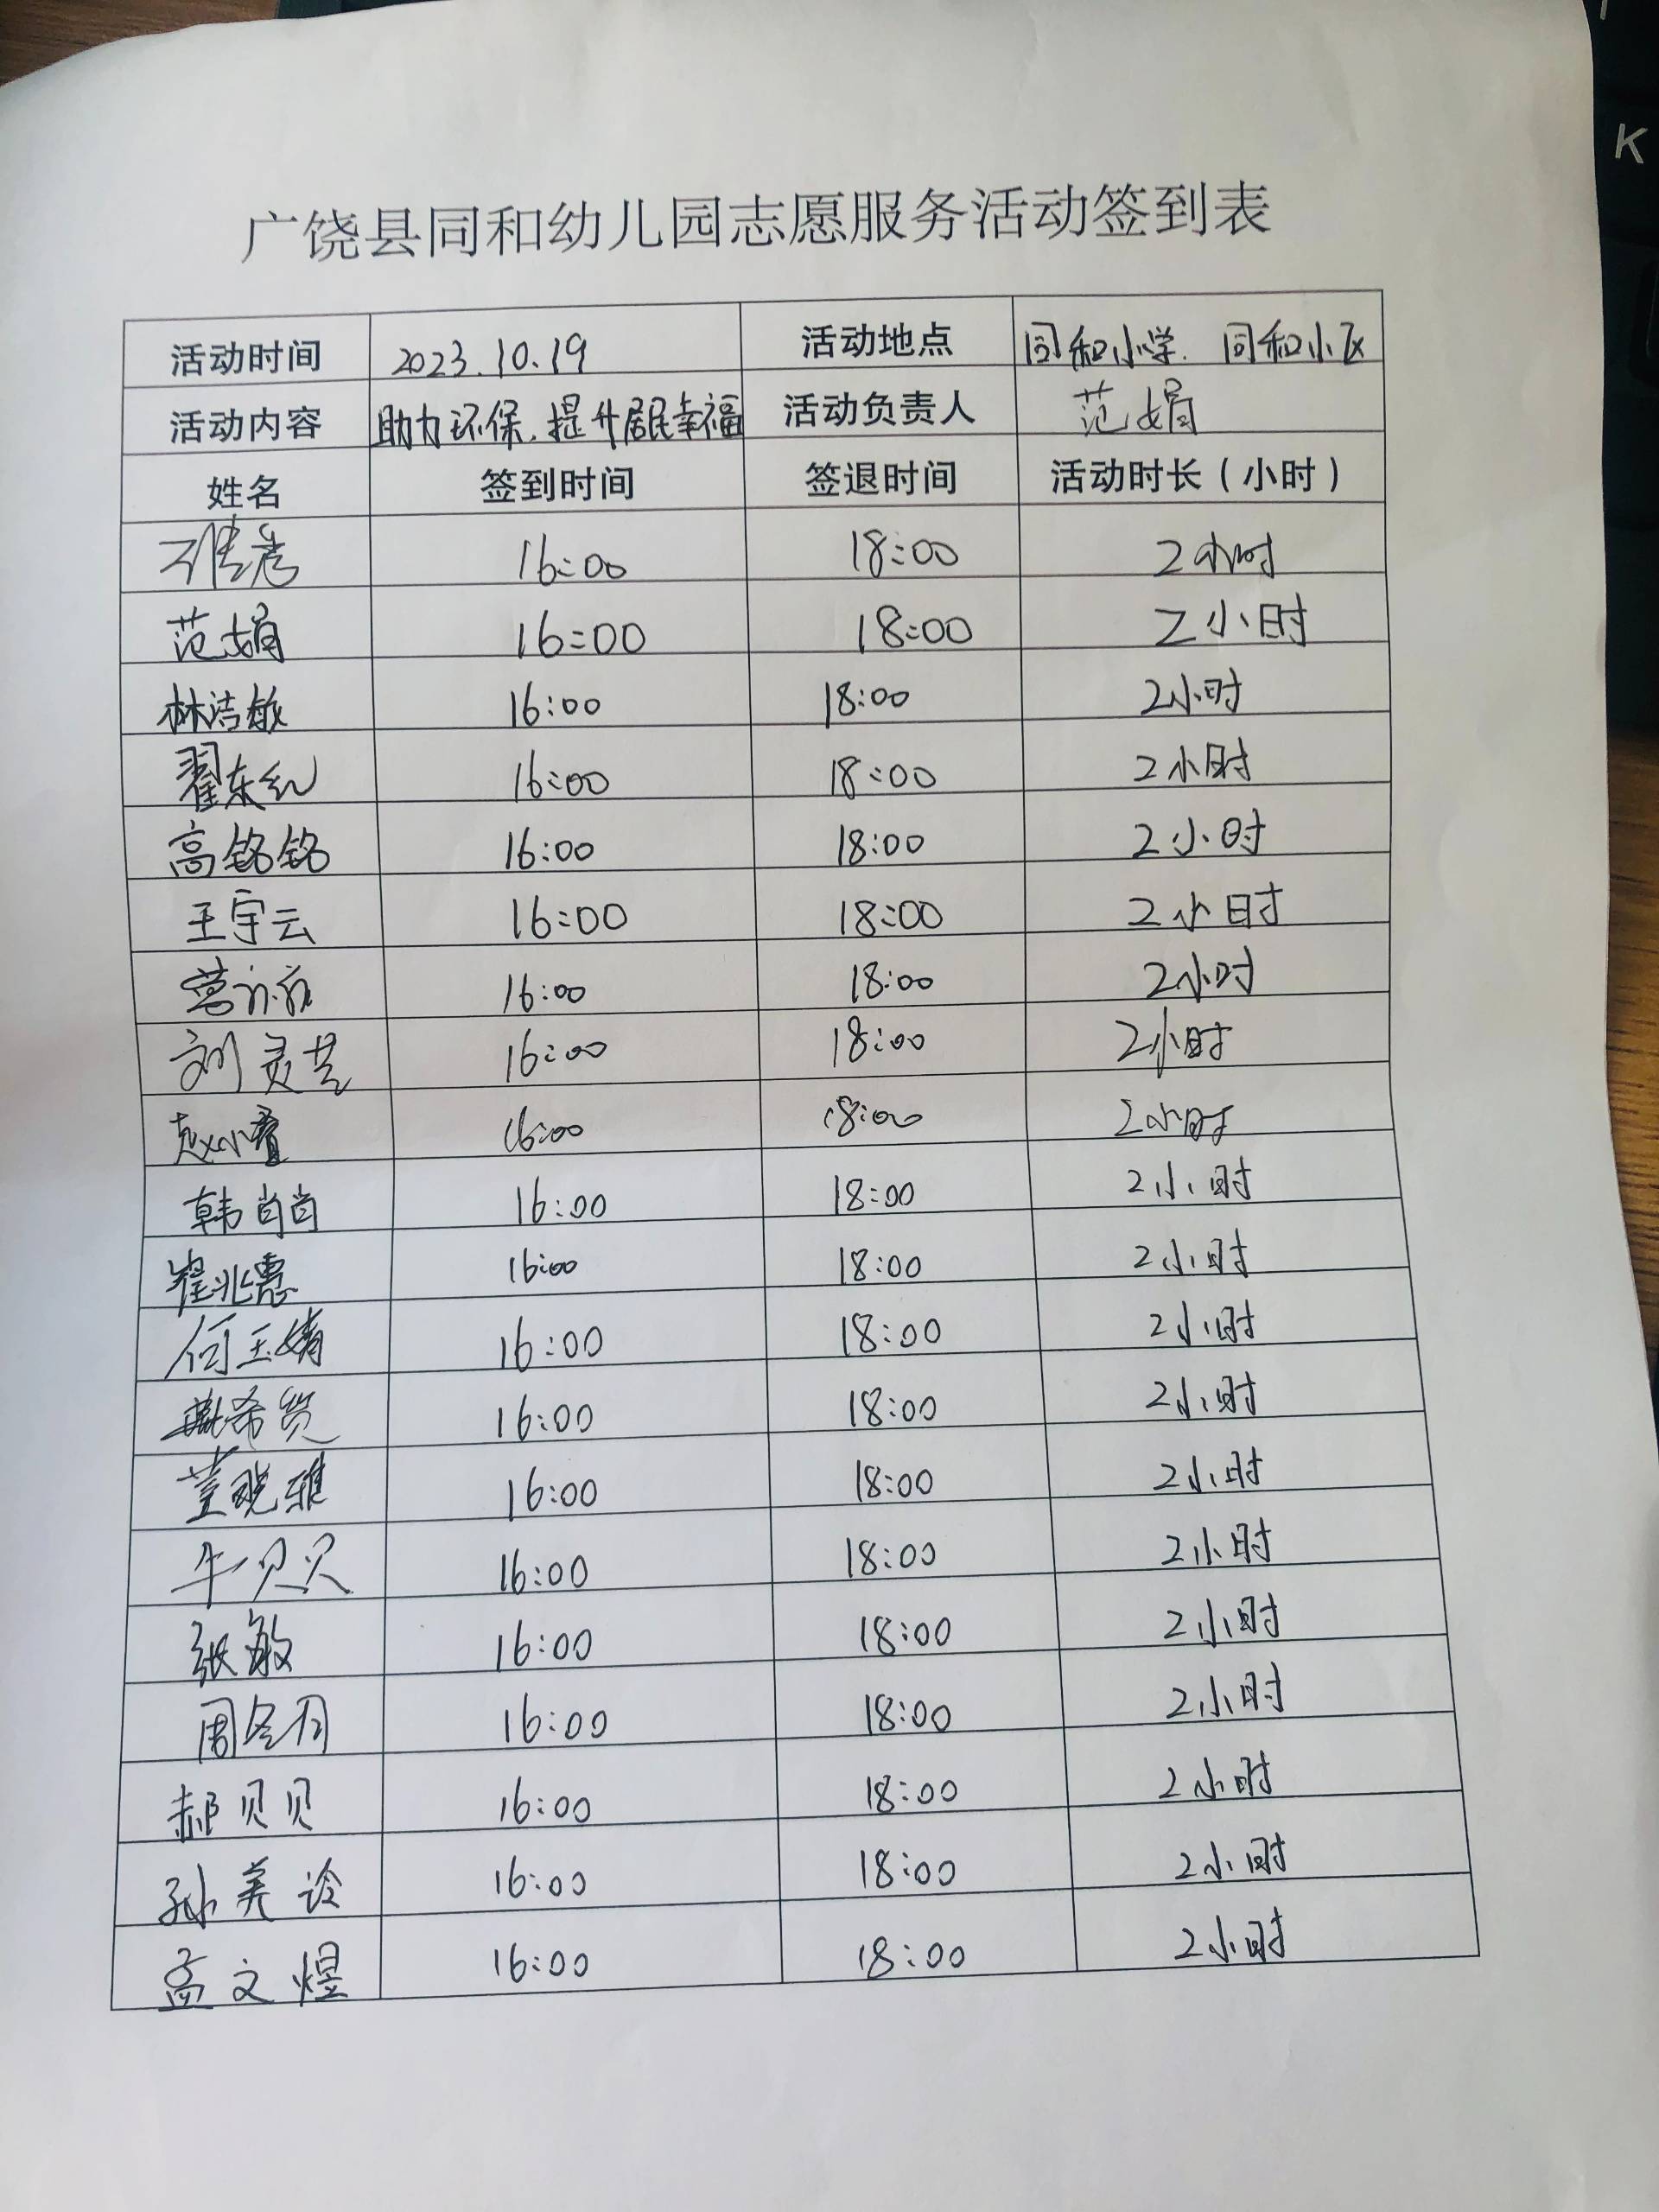 广饶县同和幼儿园志愿服务活动签到表
活动时间 2023.10.19 活动地点 同和小学. 同和小区
活动内容 助力环保.提升居民幸福 活动负责人 范娟
姓名 签到时间 签退时间 活动时长（小时）
16:00 18:00 2小时
范娟 16:00 18:00 2小时
林洁敏 16:00 18:00 2小时
翟东红 16:00 18:00 2小时
高铭铭 16:00 18:00 2小时
王宇云 16:00 18:00 2小时
16:00 18:00 2小时
刘灵芝 16:00 18:00 2小时
赵小 16:00 18:00 2小时
韩肖肖 16:00 18:00 2小时
崔兆惠 16:00 18:00 2小时
何玉婧 16:00 18:00 2小时
希贤 16:00 18:00 2小时
董晓雅 16:00 18:00 2小时
牛贝贝 16:00 18:00 2小时
张敏 16:00 18:00 2小时
周冬月 16:00 18:00 2小时
郝贝贝 16:00 18:00 2小时
孙美玲 16:00 18:00 2小时
孟文煜 16:00 18:00 2小时
K